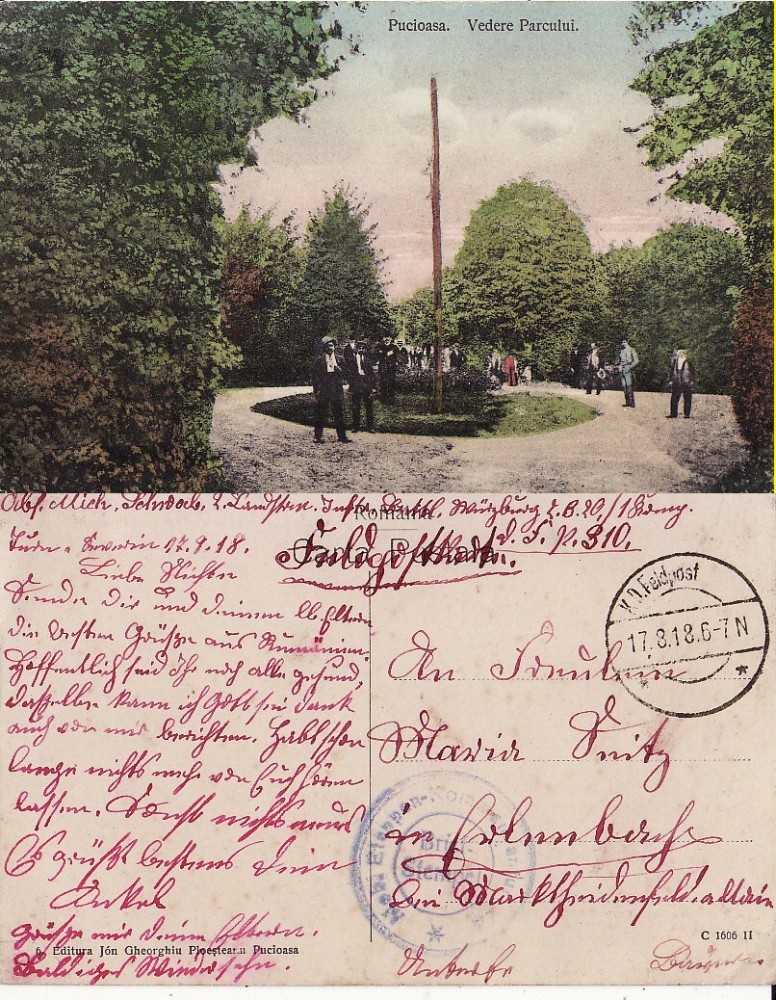 Pucioasa. Vedere Parcului.
Abs. Mich. Schwab. 2. Landstrm. Inftr. Battl. Würzburg 2.B.20/1 Komp.
Romania
d. F. P. 310.
Carta Postala
Feldpostkarte.
Turn-Severin 17.9.18.
Liebe Nichte
Sende Dir und deinen lb. Eltern
die besten Grüße aus Rumänien.
Hoffentlich seid Ihr noch alle gesund,
dasselbe kann ich Gott sei dank
auch von mir berichten. Habt schon
lange nichts mehr von Euch hören
lassen. Sonst nichts neues
Es grüßt bestens Dein
Onkel
grüße mir deine Eltern.
Baldiges Wiedersehn.
6. Editura Jón Gheorghiu Ploeșteanu Pucioasa
K.D. Feldpost
17.8.18.6-7N
An Fräulein
Maria Seitz
in Erlenbach
bei Marktheidenfeld a/Main
Unterfr
Bayern
Etappen-Kommandantur
Brief
Stempel
C 1606 II